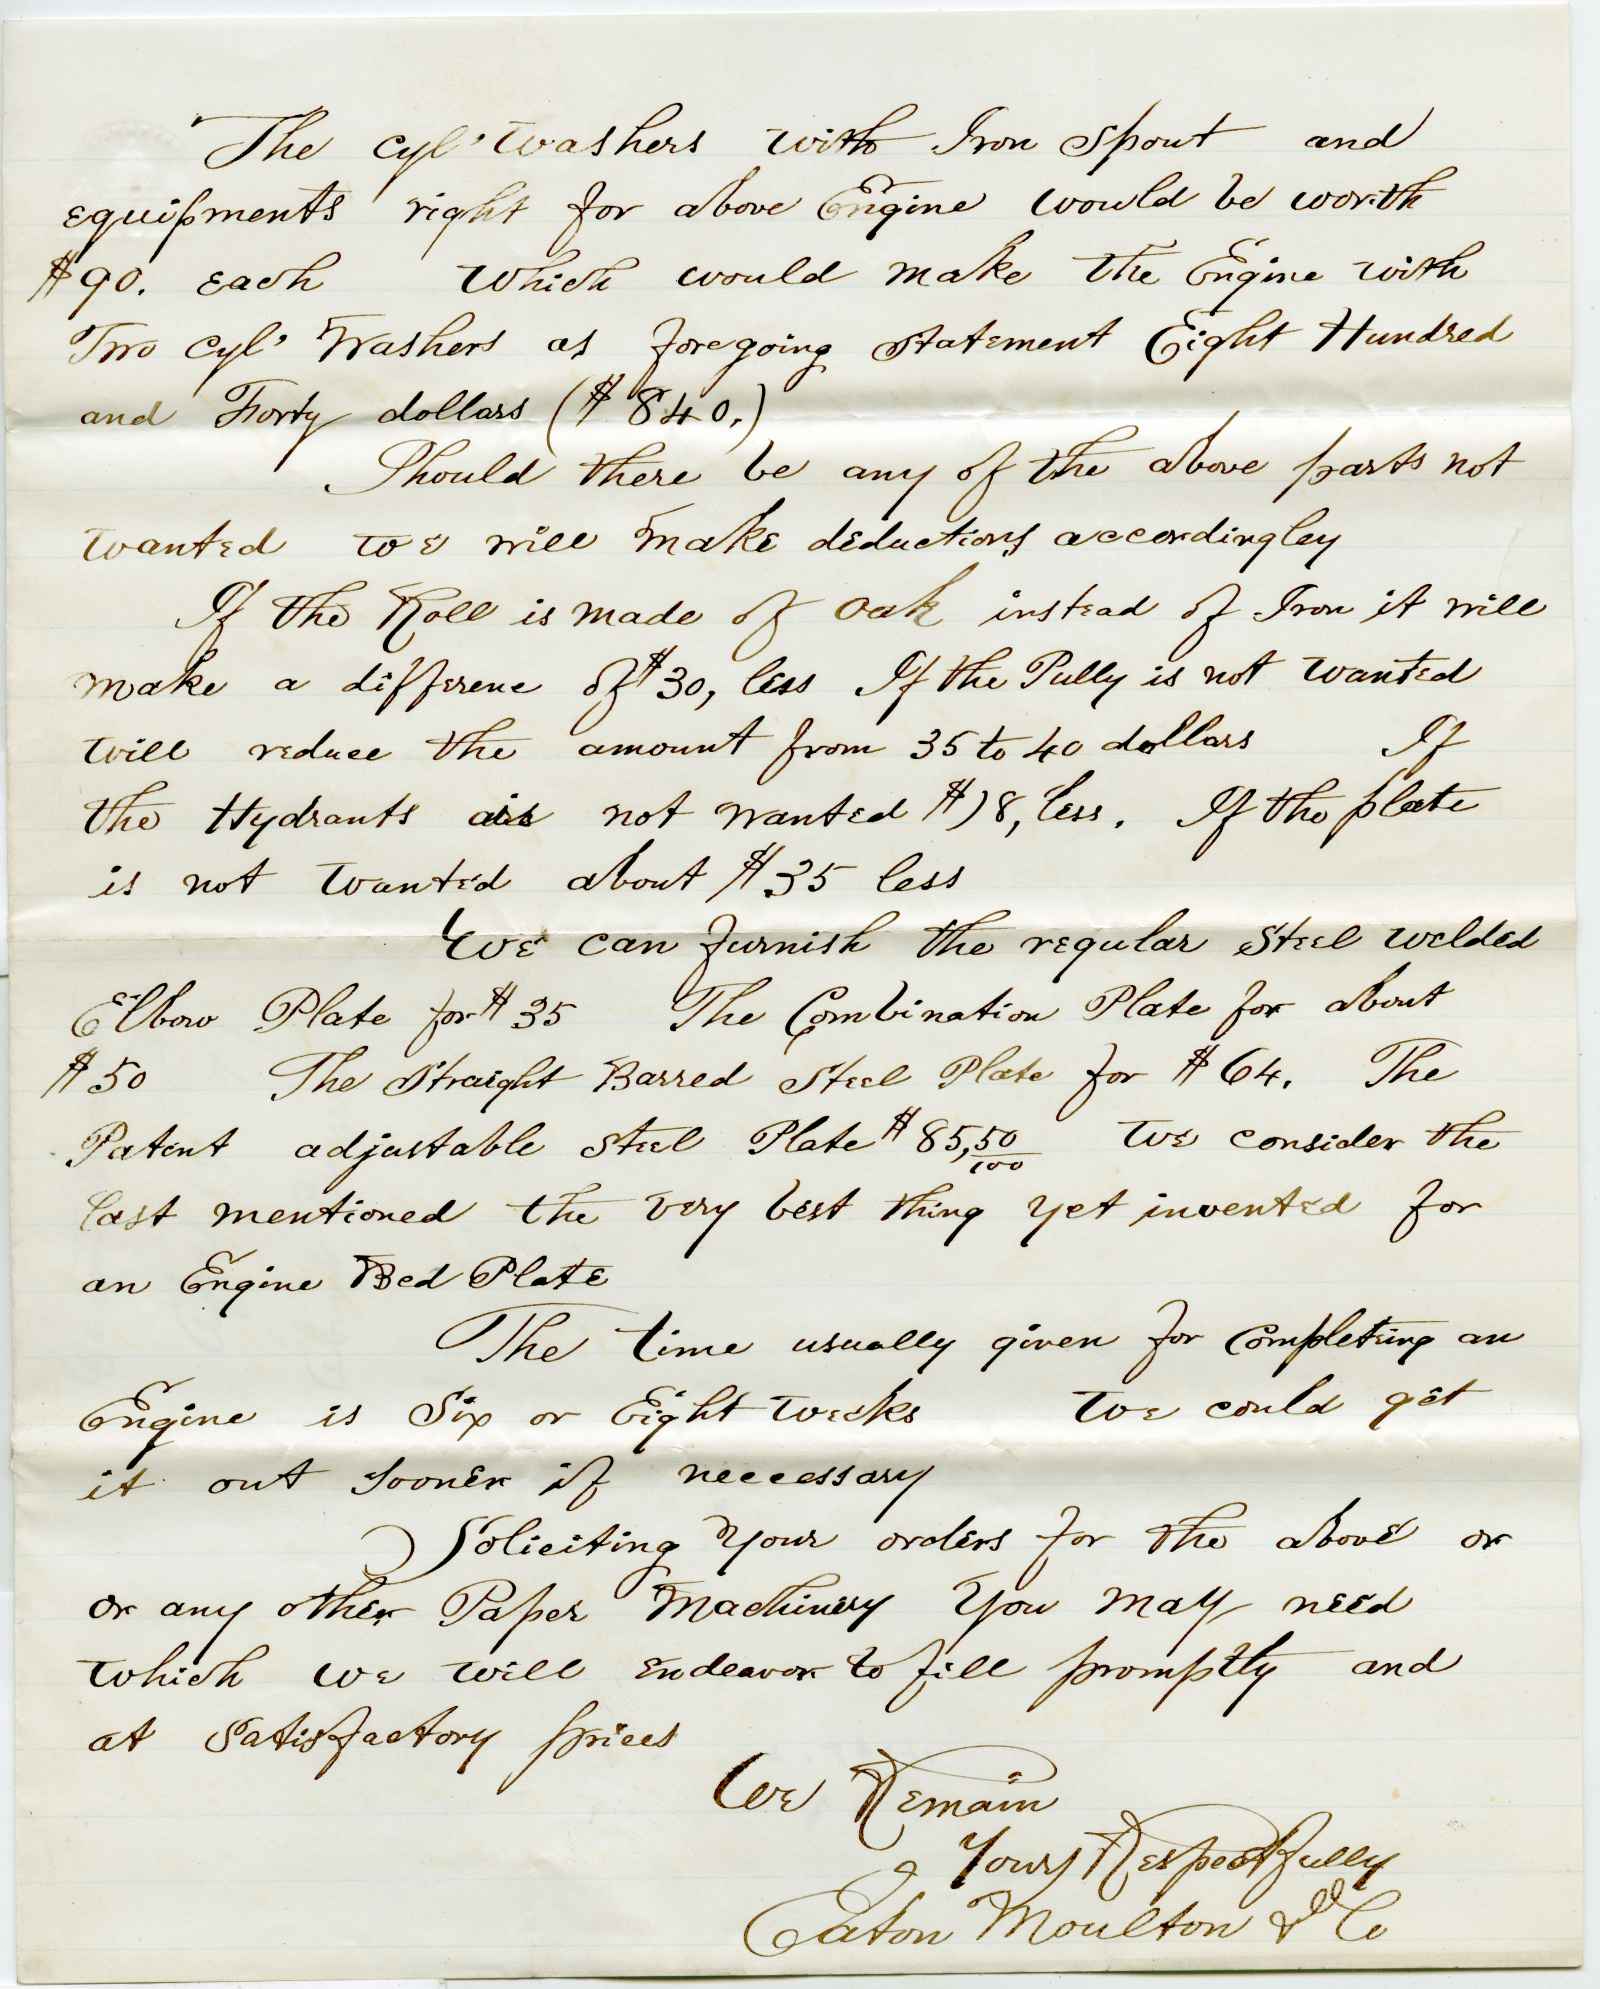 The cyl' Washers with Iron Spout and
equipments right for above Engine would be worth
$90. each Which would make the Engine with
Two Cyl' Washers as foregoing statement Eight Hundred
and Forty dollars ($840.)
Should there be any of the above parts not
wanted we will make deductions accordingley
If the Roll is made of Oak instead of Iron it will
make a differenc of $30, less If the Pully is not wanted
will reduce the amount from 35 to 40 dollars If
the Hydrants are not wanted $18, less. If the plate
is not wanted about $35 less
We can furnish the regular Steel welded
Elbow Plate for $35 The Combination Plate for about
$50 The Straight Barred Steel Plate for $64. The
Patent adjustable Steel Plate $85,50/100 We consider the
last mentioned the very best thing yet invented for
an Engine Bed Plate
The time usually given for Completing an
Engine is Six or Eight Weeks We could get
it out sooner if neccessary
Soliciting Your orders for the above or
or any other Paper Machinery You may need
Which we will endeavor to fill promptly and
at Satisfactory prices
We Remain
Yours Respectfully
Eaton Moulton & Co